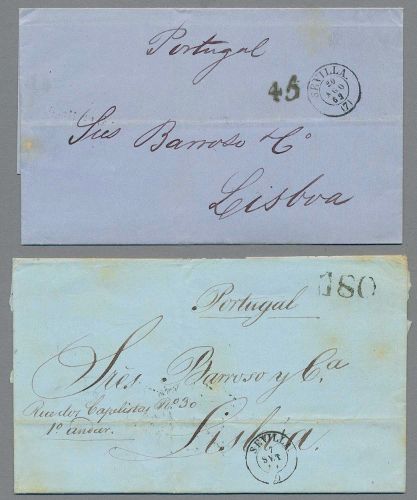 Portugal
45
SEVILLA.
20
AGO
62
(7)
Sres Barroso & Co
Lisboa
180
Portugal
Srés Barroso y Ca
Rua dos Capelistas No 30
1o andar.
Lisbia.
SEVILLA
7
SET